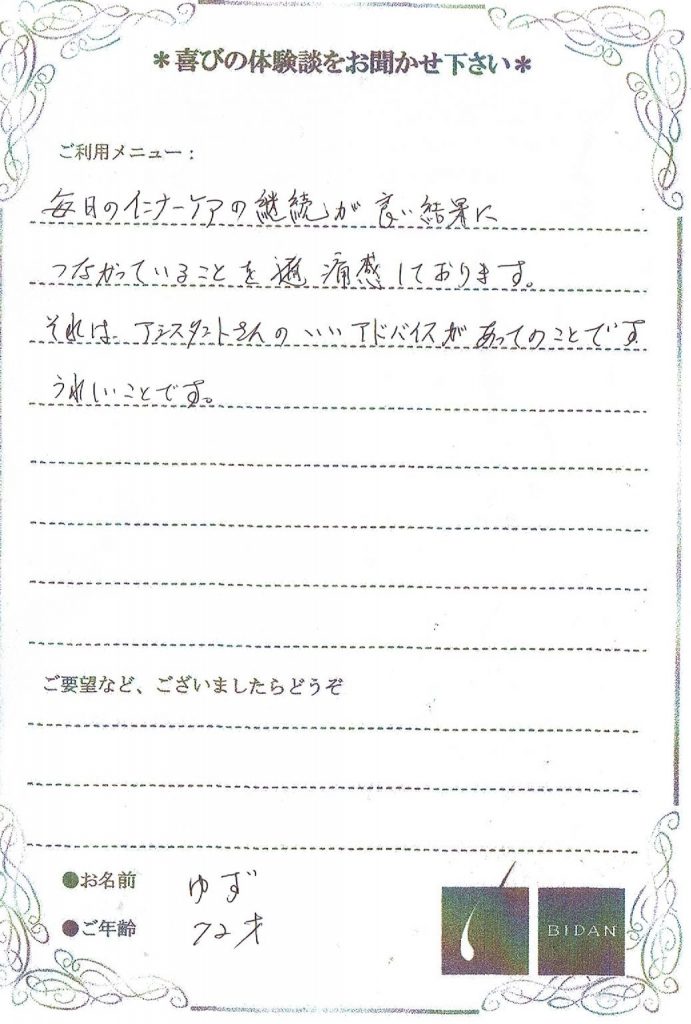 ＊喜びの体験談をお聞かせ下さい＊
ご利用メニュー：
毎日のインナーケアの継続が良い結果に
つながっていることを 痛感しております。
それは、アシスタントさんのいいアドバイスがあってのことです
うれしいことです。
ご要望など、ございましたらどうぞ
●お名前 ゆず
●ご年齢 72才
BIDAN